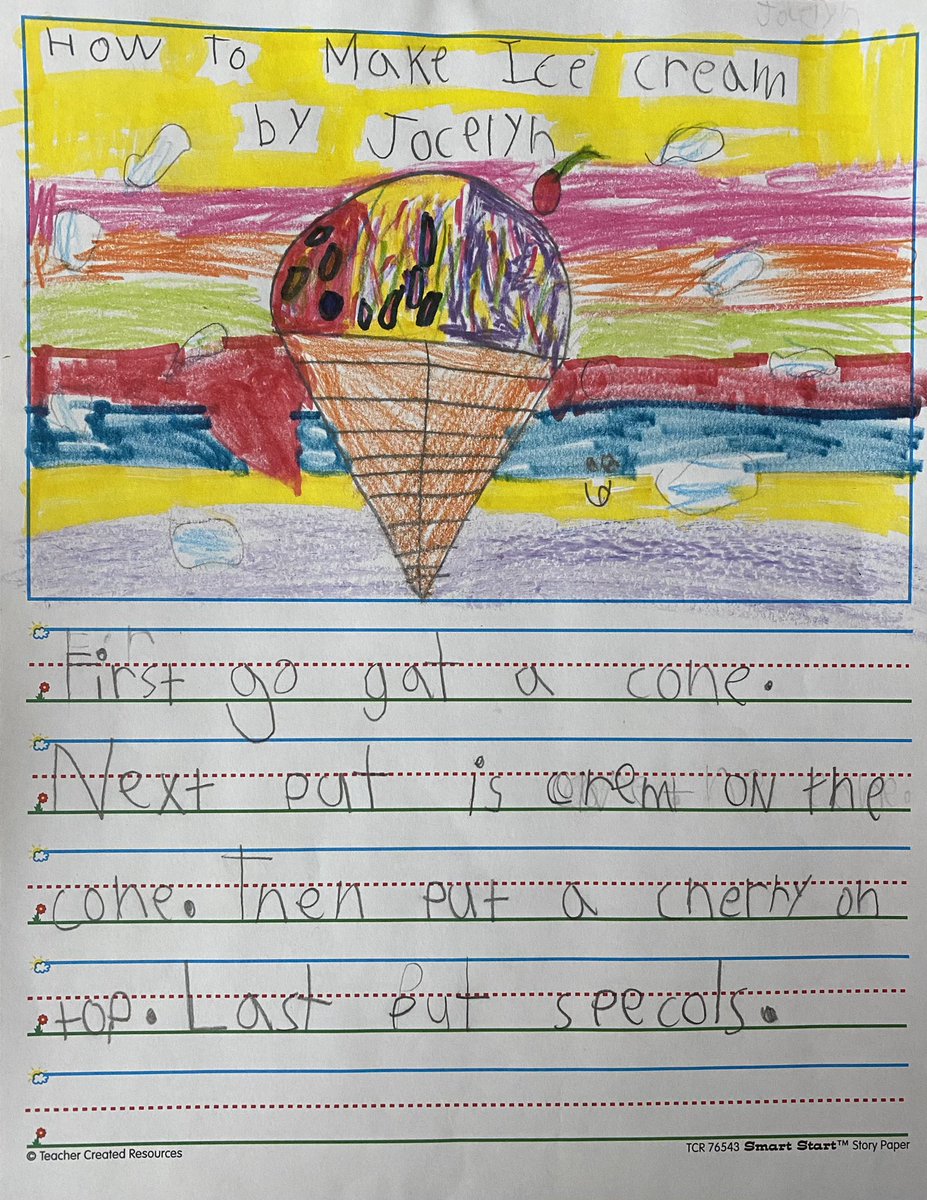 Jocelyn
How To Make Ice cream
by Jocelyn
First go gat a cone.
Next put is crem on the
cone. Then put a cherry on
top. Last put specols.
© Teacher Created Resources
TCR 76543 Smart Start™ Story Paper